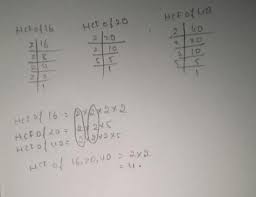 HCF of 16
2 16
2 8
2 4
2 2
1
HCF of 20
2 20
2 10
5 5
1
HCF of 40
2 40
2 20
2 10
5 5
1
HCF of 16 = 2×2×2×2
HCF of 20 = 2×2×5
HCF of 40 = 2×2×2×5
HCF of 16,20,40 = 2×2
= 4.